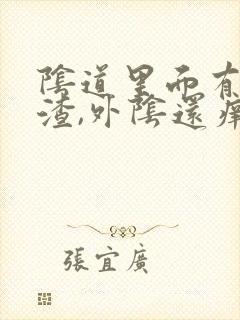 陰道里而有
渣,外陰還癢
張宜廣